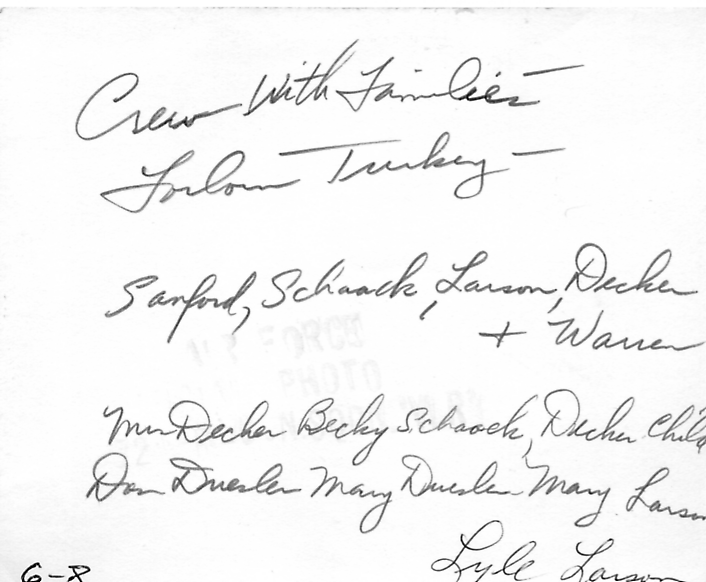 Crew With Families —
Forlorn Turkey —
Sanford, Schaack, Larson, Decker
+ Warren
Mrs Decker Becky Schaack, Decker Child
Don Duesler Mary Duesler Mary Larson
Lyle Larson
PHOTO
6-8